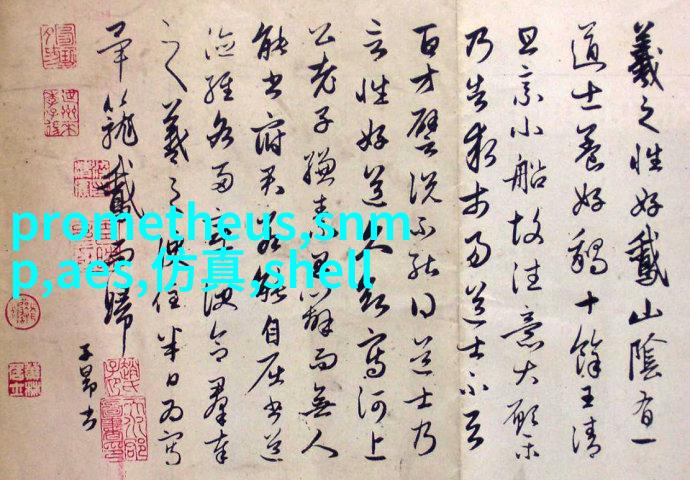 羲之性好鵞山陰有一
道士養好鵝十餘王清
旦乘小船故往意大願樂
乃告求市易道士不與
百方譬說不能得道士乃
言性好道久欲寫河上
公老子縑素早辦而無人
能書府君若能自屈書道
德經各兩章便合羣奉
之羲之便住半日為寫
畢籠鵞而歸
子昂書
prometheus,snm
p,aes,仿真,shell